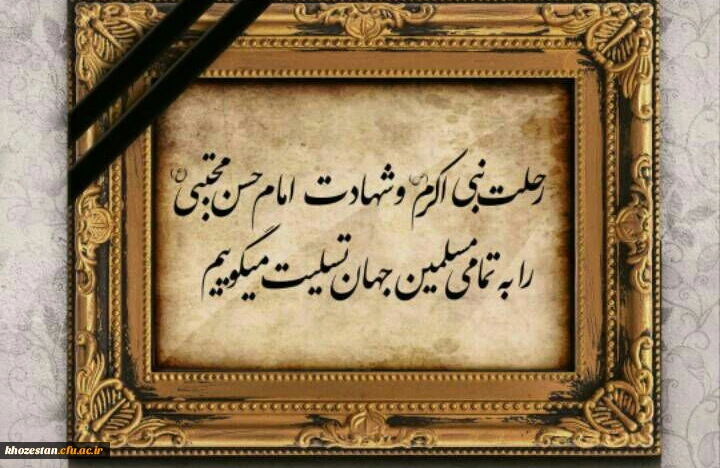 رحلت نبی اکرم (ص) و شهادت امام حسن مجتبی (ع)
را به تمامی مسلمین جهان تسلیت میگوییم
khozestan.cfu.ac.ir